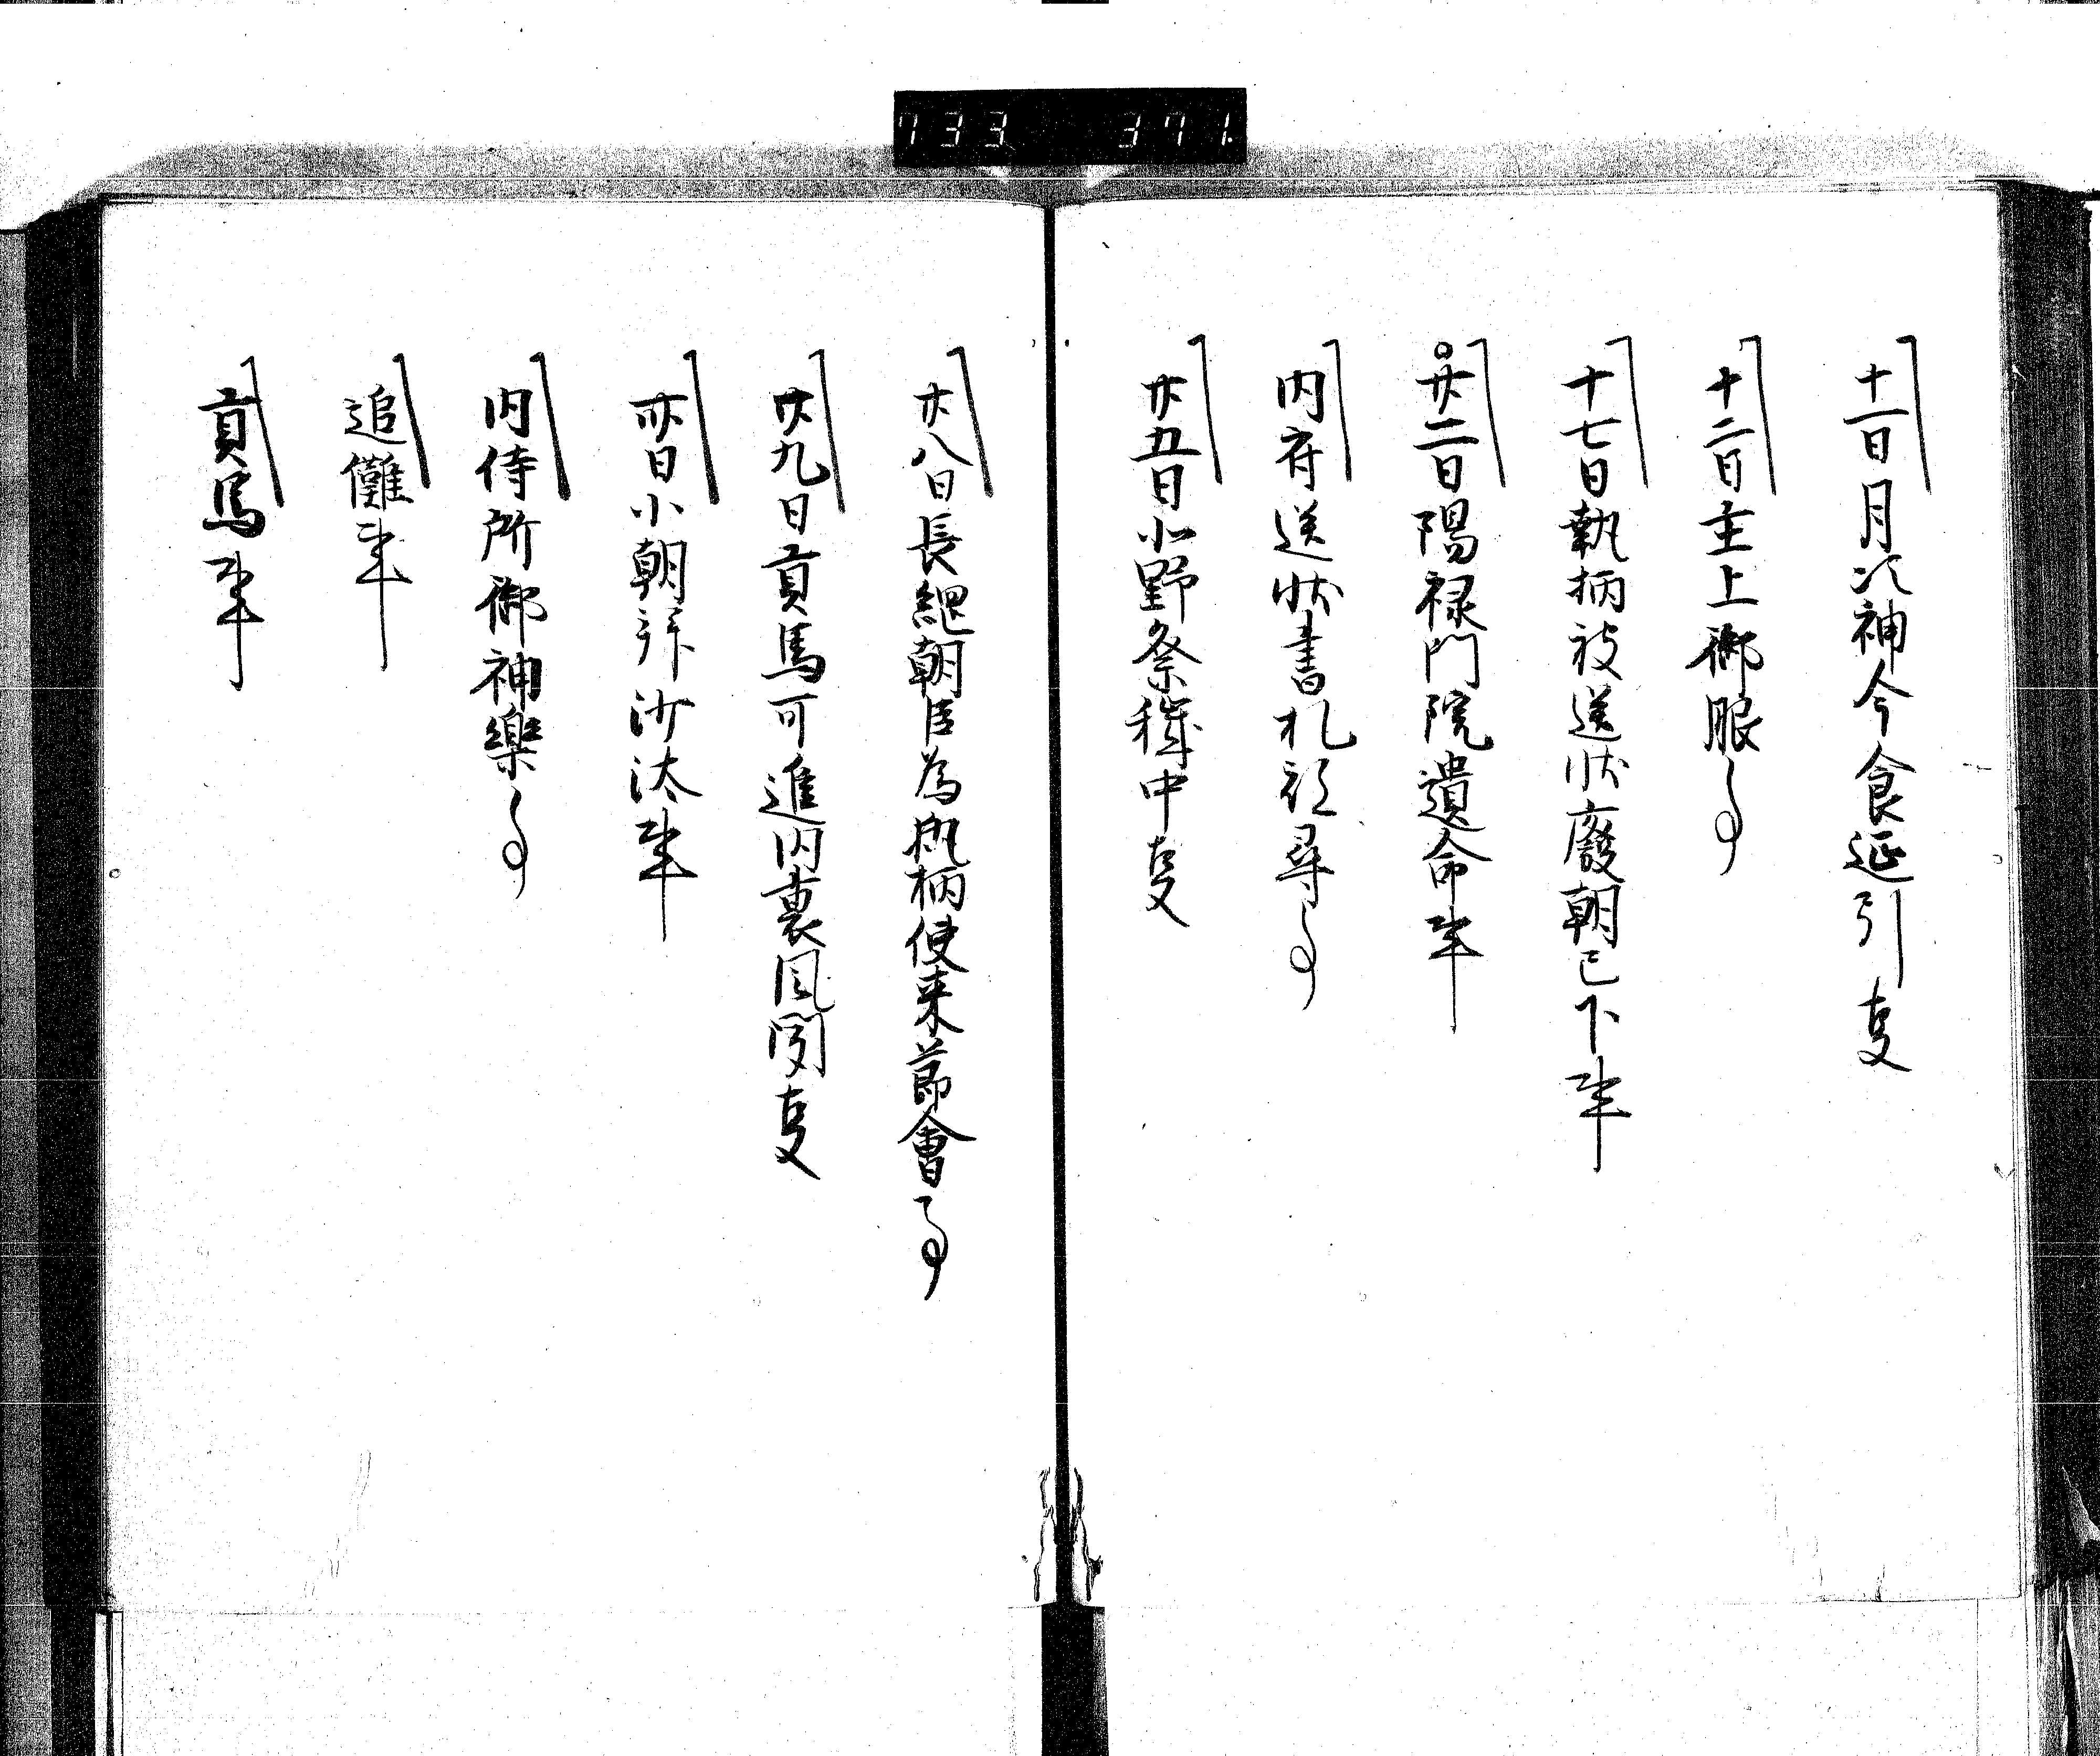 733 371
十一日月次神今食延引事
十二日主上御服事
十七日執柄被送状廃朝已下事
廿二日陽禄門院遺命事
内府送状書札被尋事
廿五日北野祭穢中事
廿八日長綱朝臣為執柄使来節會事
廿九日貢馬可進内裏風聞事
卅日小朝拝沙汰事
内侍所御神樂事
追儺事
貢馬事